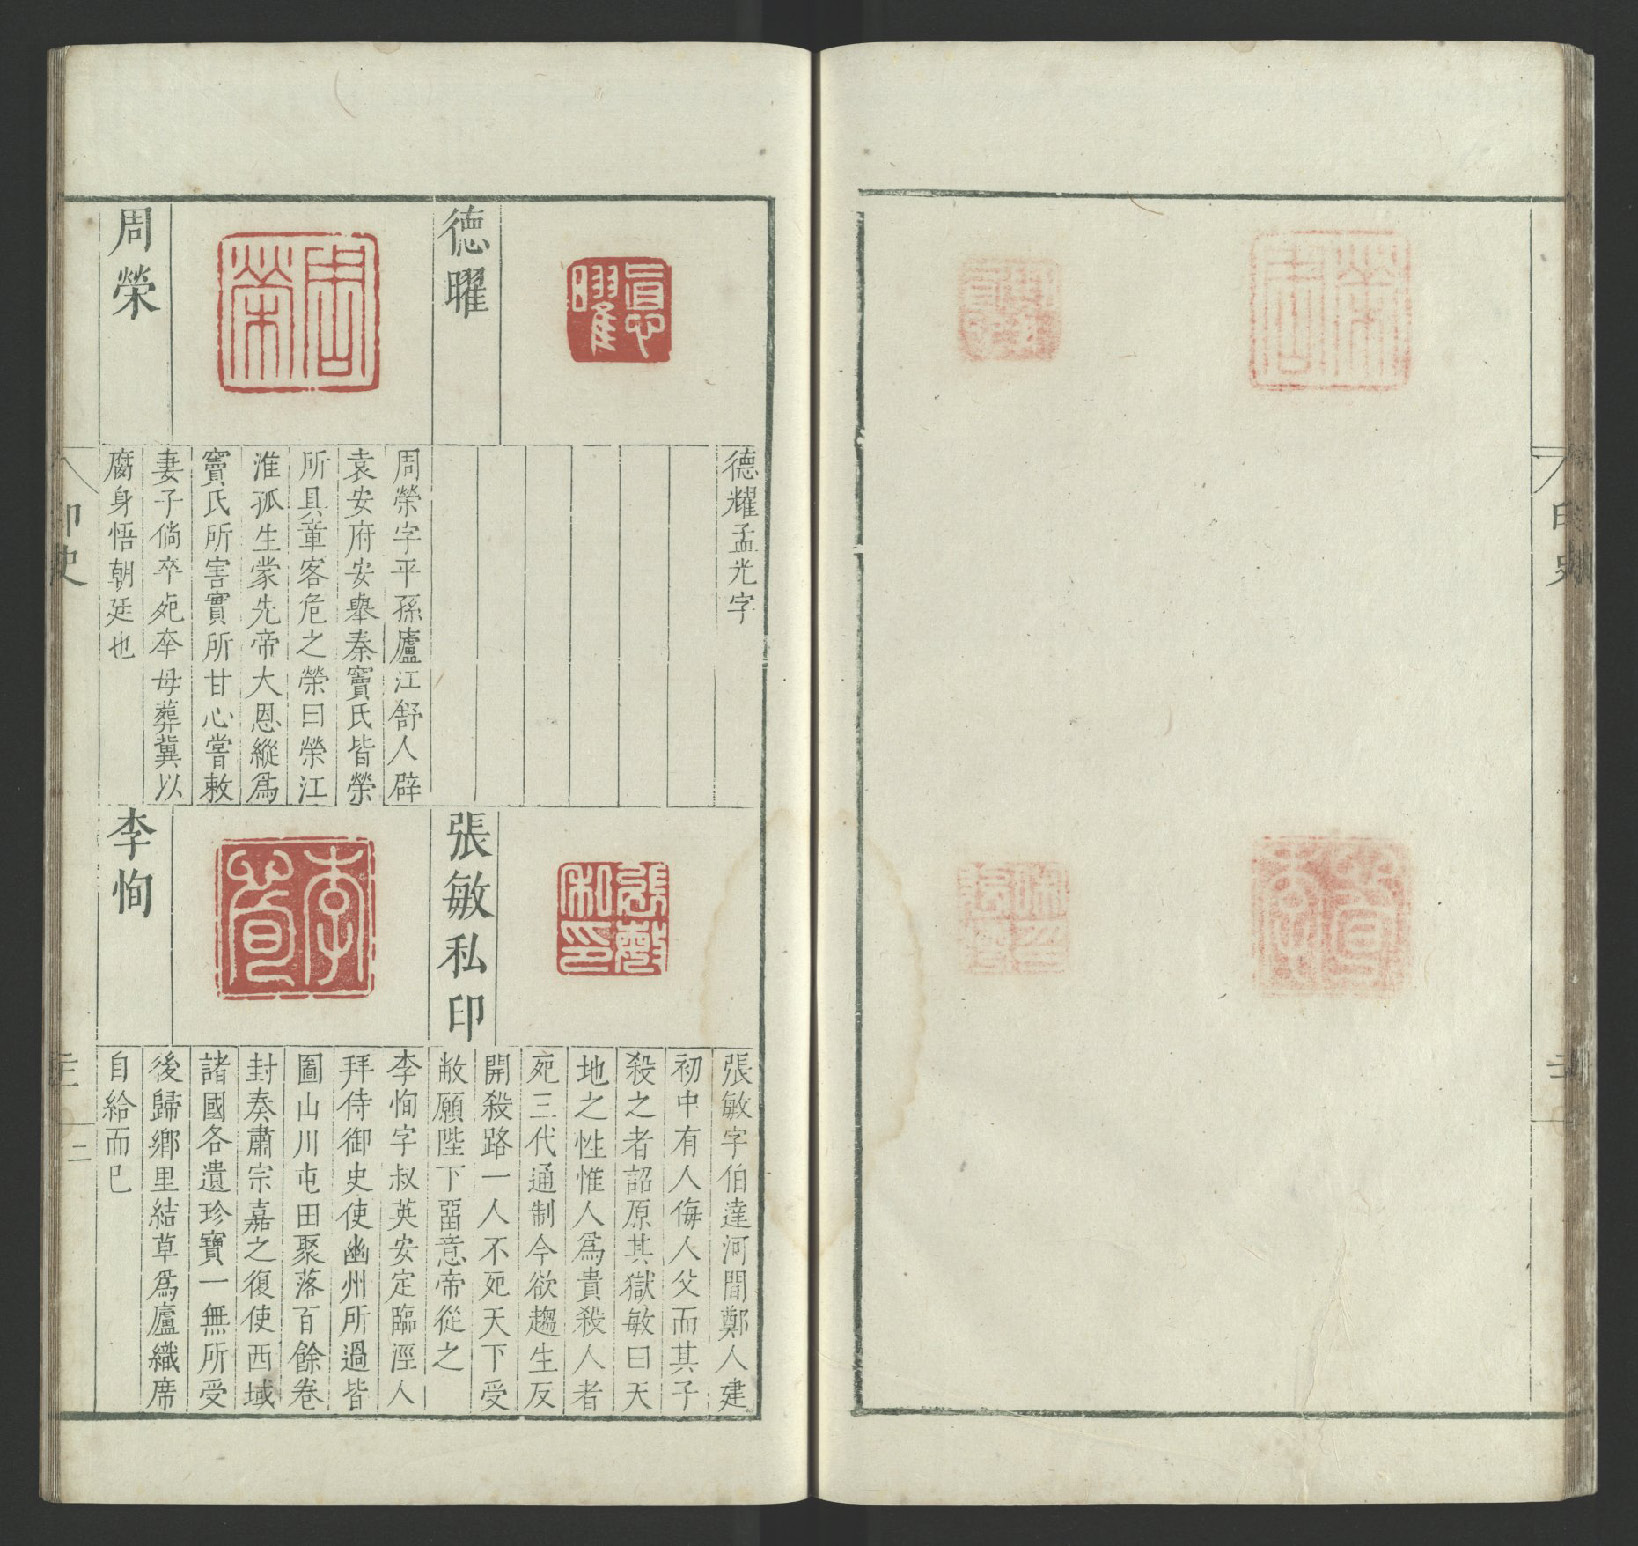 德曜
悳曜
德耀孟光字
周榮
周榮
周榮字平孫廬江舒人辟
袁安府安舉奏竇氏皆榮
所具革客危之榮曰榮江
淮孤生蒙先帝大恩縱爲
竇氏所害實所甘心嘗敕
妻子倘卒死卒母葬冀以
腐身悟朝廷也
張敏私印
張敏私印
張敏字伯達河間鄭人建
初中有人侮人父而其子
殺之者詔原其獄敏曰天
地之性惟人爲貴殺人者
死三代通制今欲趨生反
開殺路一人不死天下受
敝願陛下畱意帝從之
李恂
李恂
李恂字叔英安定臨涇人
拜侍御史使幽州所過皆
圖山川屯田聚落百餘卷
封奏肅宗嘉之復使西域
諸國各遺珍寶一無所受
後歸鄉里結草爲廬織席
自給而已
印史
印史